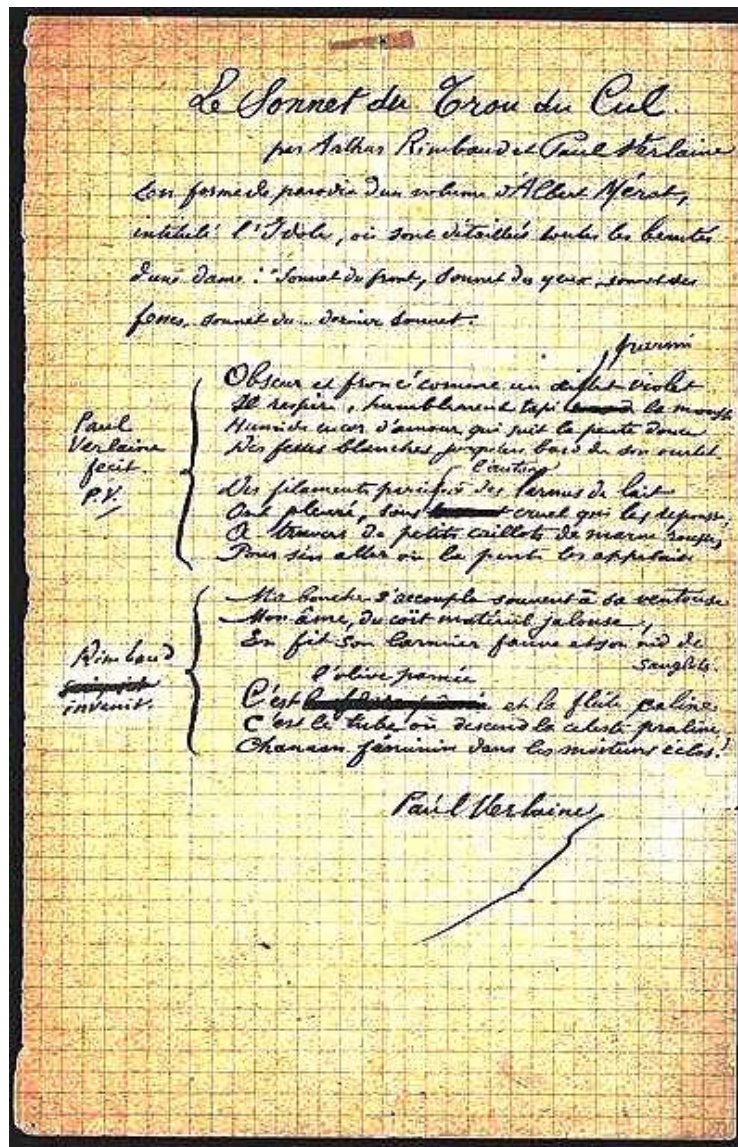 Le Sonnet du Trou du Cul
par Arthur Rimbaud et Paul Verlaine
En forme de parodie d'un volume d'Albert Mérat,
intitulé l'Idole, où sont détaillées toutes les beautés
d'une dame : "Sonnet du front, sonnet des yeux, sonnet des
fesses, sonnet du... dernier sonnet.
parmi
Paul
Verlaine
fecit.
P.V.
Obscur et froncé comme un œillet violet
Il respire, humblement tapi la mousse
Humide encor d'amour qui suit la pente douce
Des fesses blanches jusqu'au bord de son ourlet
l'autan
Des filaments pareils à des larmes de lait
Ont pleuré, sous cruel qui les repousse,
À travers de petits caillots de marne rousse,
Pour s'en aller où la pente les appelait
Rimbaud
invenit.
Ma bouche s'accoupla souvent à sa ventouse
Mon âme, du coït matériel jalouse,
En fit son larmier fauve et son nid de
sanglots.
l'olive pamée
C'est et la flûte caline
C'est le tube où descend la céleste praline,
Chanaan féminin dans les moiteurs éclos.
Paul Verlaine